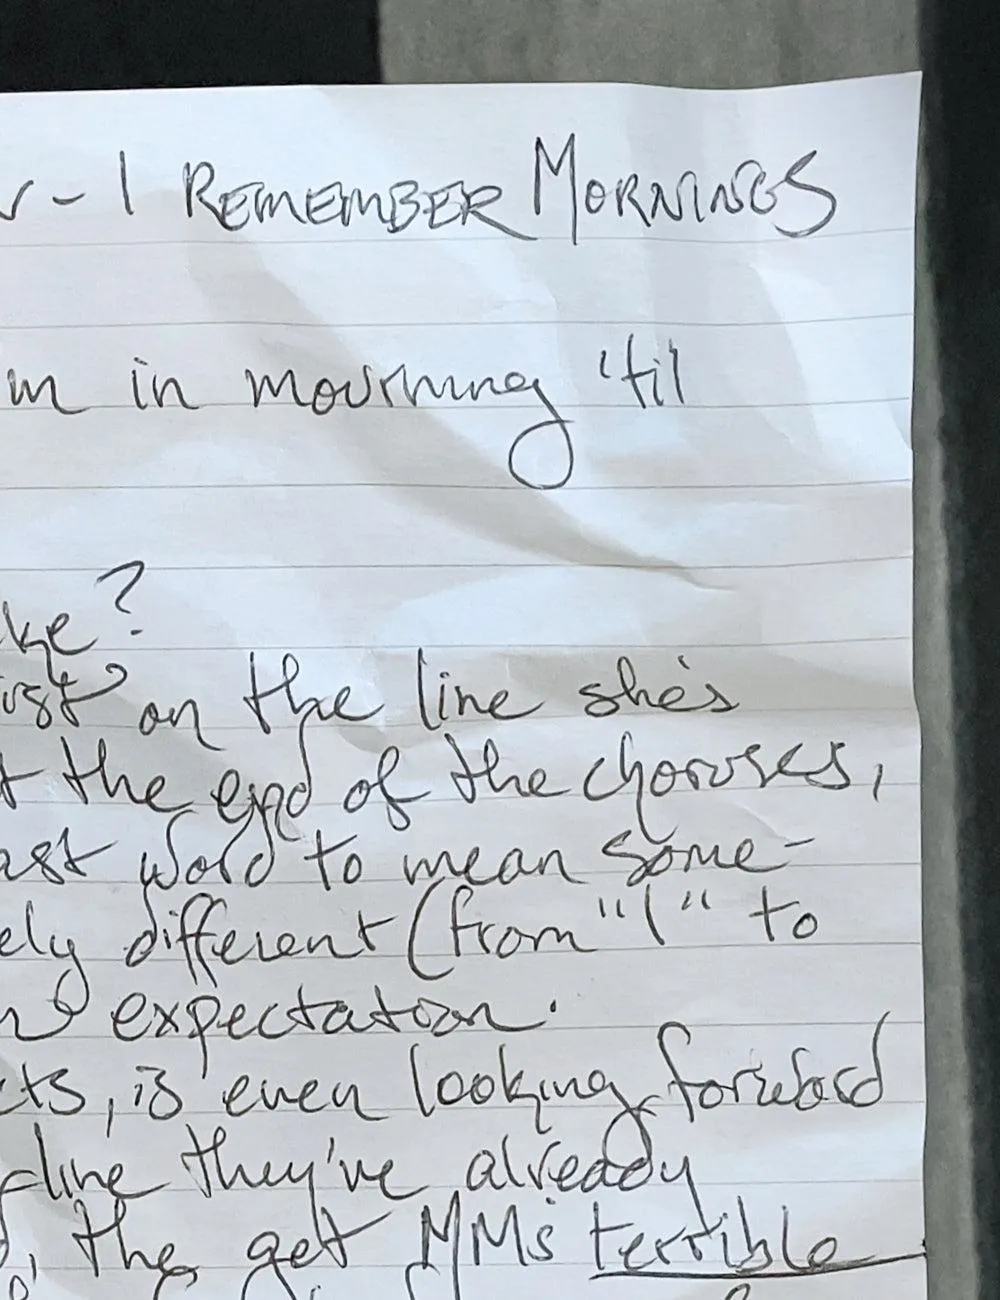 - I REMEMBER MORNINGS
in mourning 'til
?
on the line she's
the end of the choruses,
word to mean some-
different (from "I" to
expectation.
, is even looking forward
line they've already
the get MM's terrible